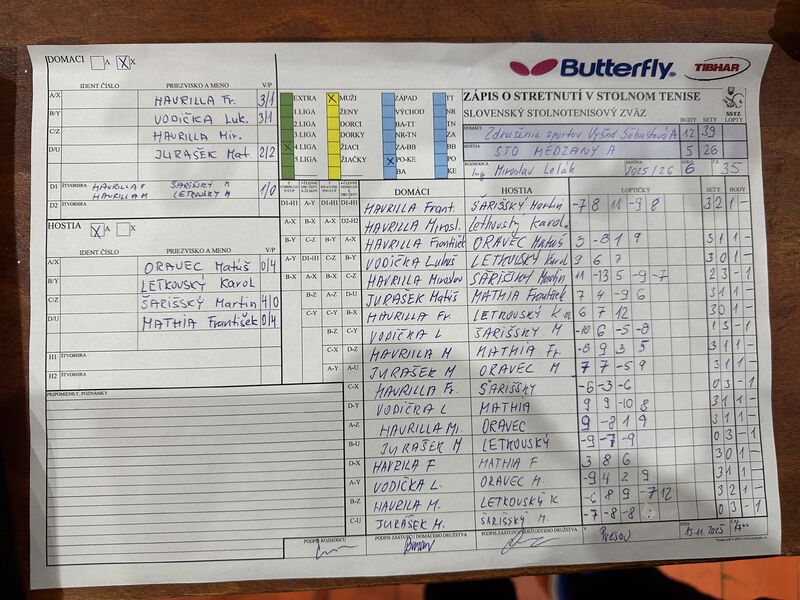 DOMÁCI A X X
IDENT. ČÍSLO PRIEZVISKO A MENO V/P
A/X HAVRILLA Fr. 3/1
B/Y VODIČKA Luk. 3/1
C/Z HAVRILLA Mir.
D/U JURAŠEK Mat. 2/2
D1 ŠTVORHRA HAVRILLA F ŠARIŠSKÝ M 1/0
D2 HAVRILLA M LETKOVSKÝ K
HOSTIA A X X
IDENT. ČÍSLO PRIEZVISKO A MENO V/P
A/X ORAVEC Matúš 0/4
B/Y LETKOVSKÝ Karol
C/Z ŠARIŠSKÝ Martin 4/0
D/U MATHIA František 0/4
H1 ŠTVORHRA
H2 ŠTVORHRA
PRIPOMIENKY, POZNÁMKY
Butterfly TIBHAR
EXTRA X MUŽI ZÁPAD TT
1.LIGA ŽENY VÝCHOD NR
2.LIGA DORCI BA-TT TN
3.LIGA DORKY NR-TN ZA
4.LIGA ŽIACI ZA-BB BB
5.LIGA ŽIAČKY PO-KE PO
BA KE
ZÁPIS O STRETNUTÍ V STOLNOM TENISE
SLOVENSKÝ STOLNOTENISOVÝ ZVÄZ
SSTZ
BODY SETY LOPTY
DOMÁCI Združenie športov Vyšná Šebastová A 12 39
HOSTIA STO MEDZANY A 5 26
ROZHODCA Ing. Miroslav Lelák SEZÓNA 2025/26 KOLO 6 35
DOMÁCI HOSTIA LOPTIČKY SETY BODY
D1-H1 A-Y D1-H1 D1-H1 HAVRILLA Frant. ŠARIŠSKÝ Martin -7 8 11 -9 8 3 2 1 -
A-X B-X A-X D2-H2 HAVRILLA Mirosl. Letkovský Karol
B-Y C-Z B-Y A-X HAVRILLA František ORAVEC Matúš 3 -8 1 9 3 1 1 -
A-Y D1-H1 C-Z B-Y VODIČKA Lukáš LETKOVSKÝ Karol 3 6 7 3 0 1 -
B-X A-X D1-H1 C-Z HAVRILLA Miroslav ŠARIŠSKÝ Martin 11 -13 5 -9 -7 2 3 - 1
B-Z A-Z D-U JURAŠEK Matúš MATHIA František 7 4 -9 6 3 1 1 -
C-Y C-Y B-X HAVRILLA Fr. LETKOVSKÝ K 6 7 12 3 0 1 -
B-Z C-Y VODIČKA L ŠARIŠSKÝ M -10 6 -5 -8 1 3 - 1
C-X D-Z HAVRILLA M MATHIA Fr. -8 9 3 5 3 1 1 -
A-Y A-U JURAŠEK M ORAVEC M 7 7 -5 9 3 1 1 -
C-X HAVRILLA Fr. ŠARIŠSKÝ -6 -3 -6 0 3 - 1
D-Y VODIČKA L MATHIA 9 9 -10 8 3 1 1 -
A-Z HAVRILLA Mi. ORAVEC 9 -8 1 9 3 1 1 -
B-U JURAŠEK M LETKOVSKÝ -9 -7 -9 0 3 - 1
D-X HAVRILA F MATHIA F 3 8 6 3 0 1 -
A-Y VODIČKA L. ORAVEC M. -9 4 2 9 3 1 1 -
B-Z HAVRILA M. LETKOVSKÝ K -6 8 9 -7 12 3 2 1 -
C-U JURAŠEK M. ŠARIŠSKÝ M. -7 -8 -8 0 3 - 1
PODPIS ROZHODCU PODPIS ZÁSTUPCU DOMÁCEHO DRUŽSTVA PODPIS ZÁSTUPCU HOSŤUJÚCEHO DRUŽSTVA V Prešov DŇA 15.11.2025 ČAS 17:00